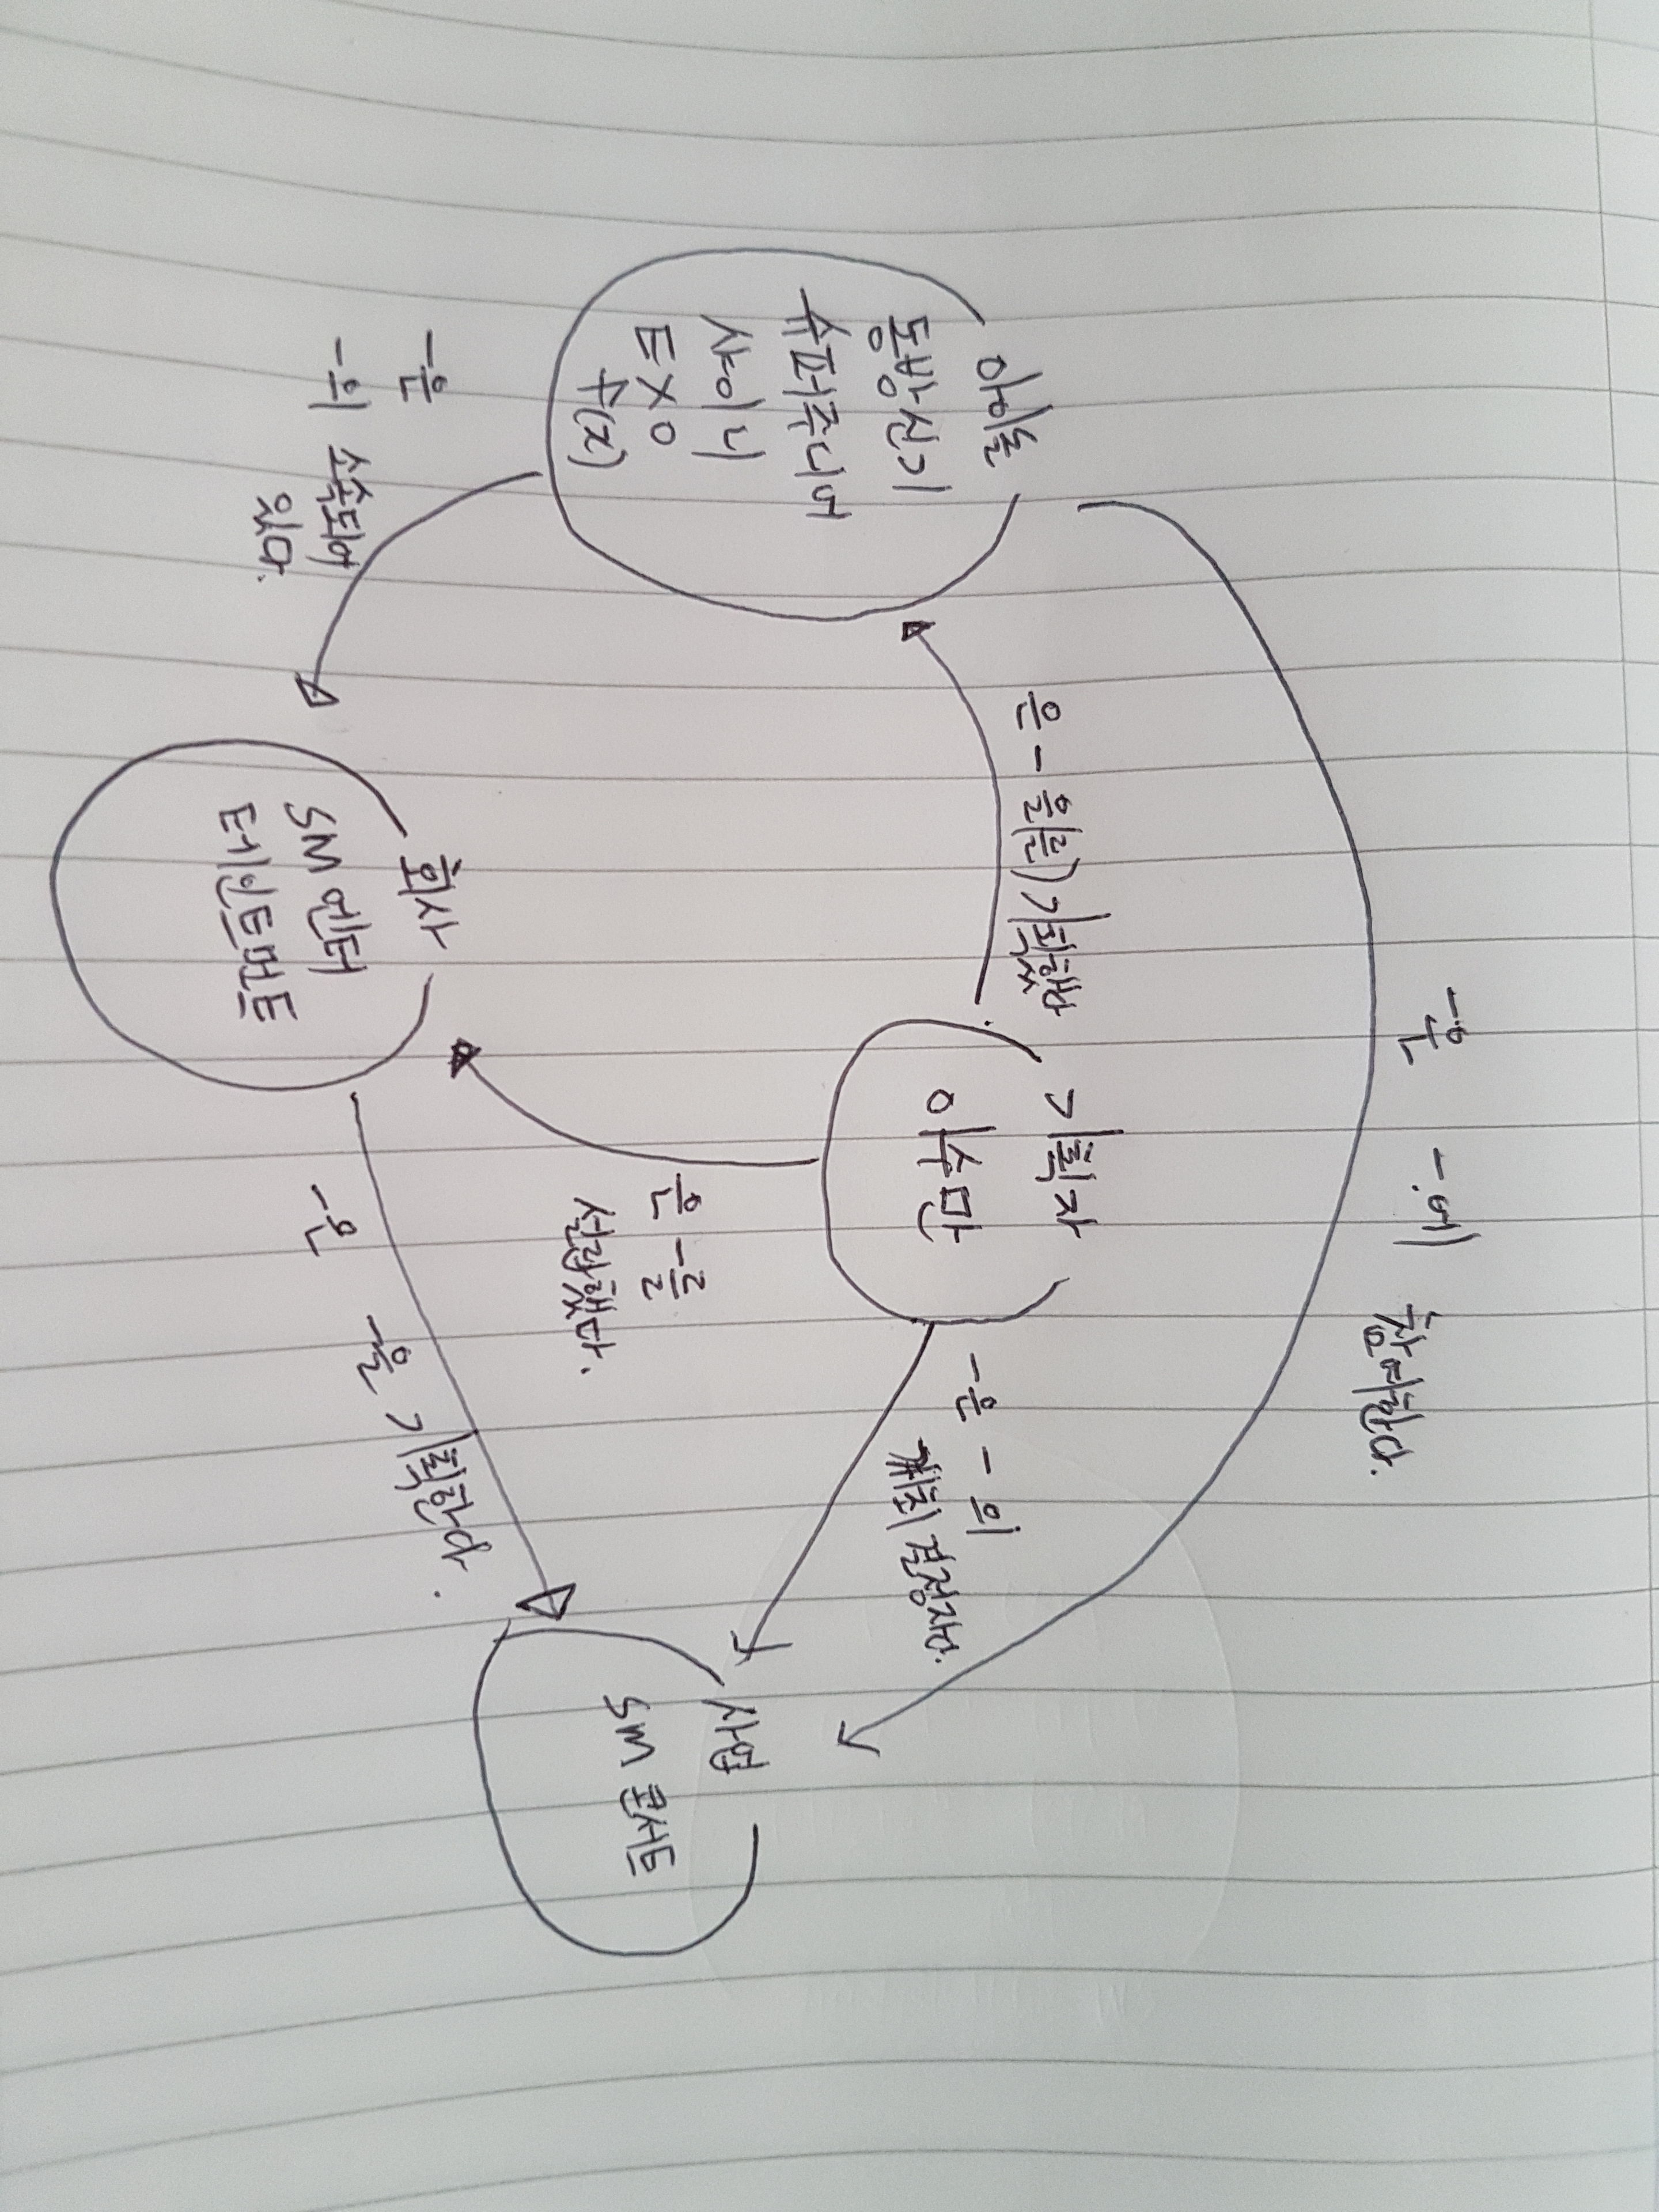 아이돌
동방신기
슈퍼주니어
샤이니
EXO
f(x)
-은
-의 소속되어
있다.
은 - 을(를) 기획했다
-은 -에 참여한다.
기획자
이수만
은 -를
설립했다.
-은 - 의
개최 결정자다.
회사
SM 엔터
테인트먼트
-은 -을 기획한다.
사업
SM 콘서트